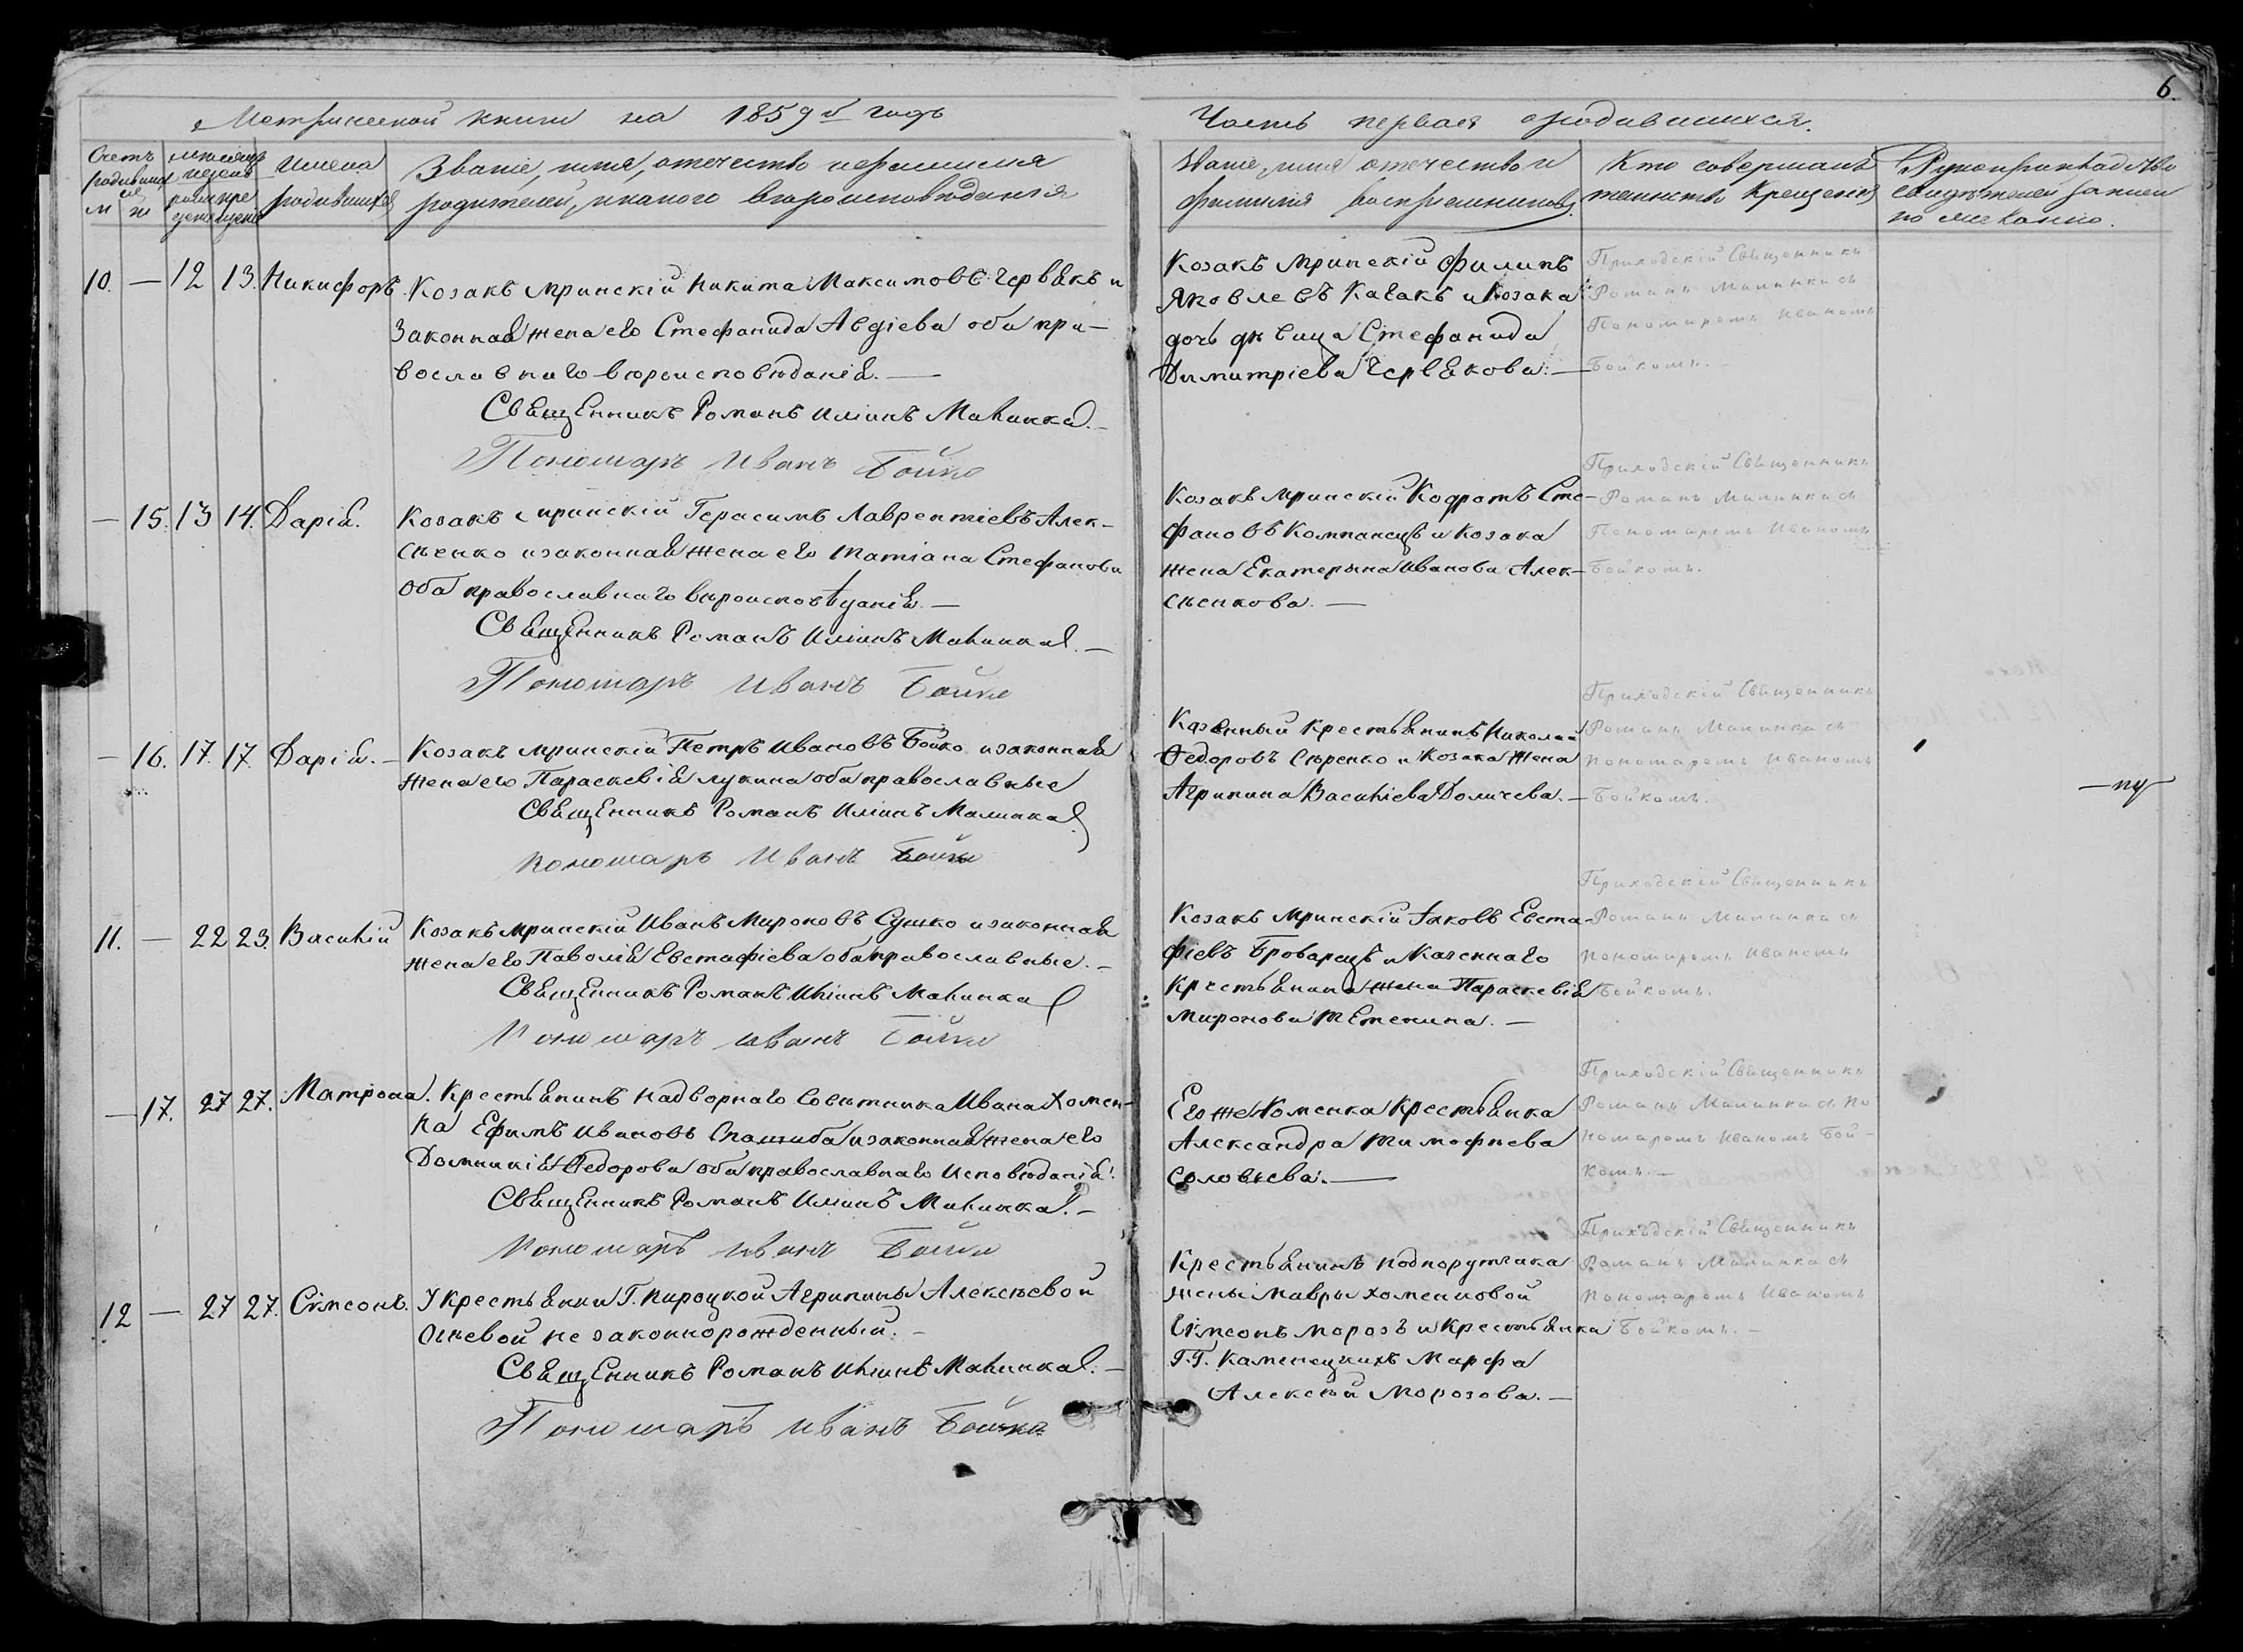 Метрической книги на 1859й годъ
Часть первая о родившихся.
6.
Счетъ родившихся
м ж
Мѣсяцъ и день
рожденія крещенія
Имена
родившихся
Званіе, имя, отечество и фамилия
родителей, и какого вѣроисповѣданія
Званіе, имя отечество и
фамилия воспріемниковъ.
Кто совершалъ
таинство крещенія
Рукоприкладство
свидѣтелей записи
по желанію.
10. — 12 13. Никифоръ.
Козакъ Мринскій Никита Максимовъ Червякъ и
Законная жена его Стефанида Авдіева оба пра-
вославнаго вѣроисповѣданія. —
Священникъ Романъ Иліинъ Малинка. —
Пономарь Иванъ Бойко
Козакъ Мринскій Филипъ
Яковлевъ Кавакъ и Козака
дочь дѣвица Стефанида
Димитріева Червякова. —
Приходскій Священникъ
Романъ Малинка съ
Пономаремъ Иваномъ
Бойкомъ. —
— 15. 13 14. Дарія.
Козакъ Мринскій Герасимъ Лаврентіевъ Алек-
сѣенко и законная жена его Татіана Стефанова
Оба православнаго вѣроисповѣданія. —
Священникъ Романъ Иліинъ Малинка. —
Пономарь Иванъ Бойко
Козакъ Мринскій Кодратъ Сте-
фановъ Компанецъ и Козака
жена Екатерина Иванова Алек-
сѣенкова. —
Приходскій Священникъ
Романъ Малинка съ
Пономаремъ Иваномъ
Бойкомъ.
— 16. 17. 17. Дарія. —
Козакъ Мринскій Петръ Ивановъ Бойко и законная
жена его Параскевія Лукина оба православные
Священникъ Романъ Иліинъ Малинка
пономарь Иванъ Бойко
Казенный крестьянинъ Николай
Федоровъ Сюренко и Козака жена
Агрипина Василіева Доличева. —
Приходскій Священникъ
Романъ Малинка съ
пономаремъ Иваномъ
Бойкомъ.
11. — 22 23. Василій
Козакъ Мринскій Иванъ Мироновъ Сушко и законная
жена его Паволія Евстафіева оба православные. —
Священникъ Романъ Иліинъ Малинка
Пономарь Иванъ Бойко
Козакъ Мринскій Іаковъ Евста-
фіевъ Броварецъ и Казеннаго
Крестьянина жена Параскевія
Миронова Тетенина. —
Приходскій Священникъ
Романъ Малинка съ
пономаремъ Иваномъ
Бойкомъ.
— 17. 27 27. Матрона.
Крестьянинъ Надворнаго Совѣтника Ивана Хомен-
ка Ефимъ Ивановъ и законная жена его
Домникія Федорова оба православнаго исповѣданія.
Священникъ Романъ Иліинъ Малинка. —
Пономарь Иванъ Бойко
Его же Хоменка Крестьянка
Александра Тимофѣева
Соловьева. —
Приходскій Священникъ
Романъ Малинка съ По-
номаремъ Иваномъ Бой-
комъ. —
12 — 27 27. Сѵмеонъ.
У крестьянки Г. Пироцкой Агрипины Алексѣевой
незаконнорожденный. —
Священникъ Романъ Иліинъ Малинка. —
Пономарь Иванъ Бойко
Крестьянинъ подпорутчика
жены Мавры Хоменковой
Сѵмеонъ Морозъ и Крестьянка
Г.Г. Каменецкихъ Марфа
Алексѣй Морозова. —
Приходскій Священникъ
Романъ Малинка съ
пономаремъ Иваномъ
Бойкомъ. —